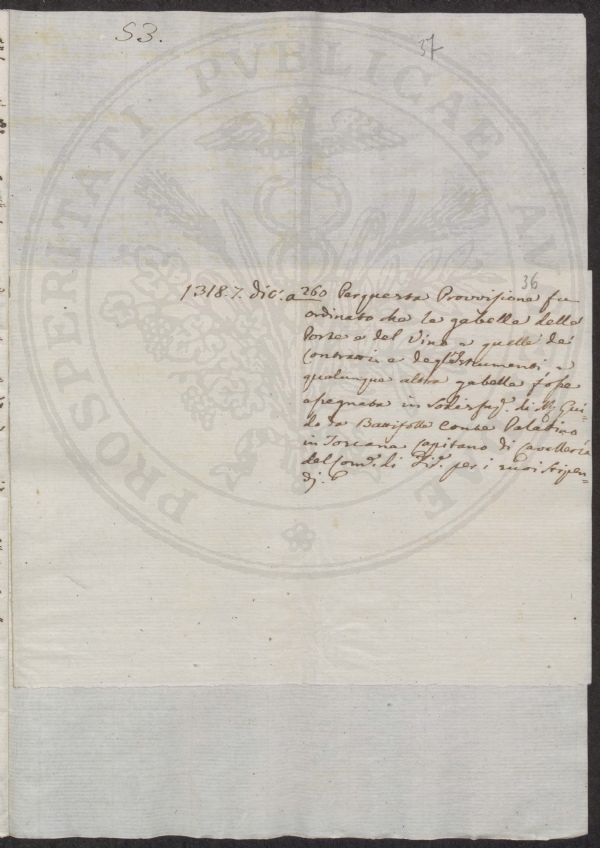 53.
37
36
1318. 7. Dic. a 260 Per questa Provvisione fu
ordinato che la gabella delle
Porte e del Vino e quella dei
Contratti e degl'Istrumenti, e
qualunque altra gabella fosse
assegnata in Sodisfaz. di M. Gui=
do da Battifolle Conte Palatino
in Toscana Capitano di Cavalleria
del Com. di Fir. per i suoi stipen=
dj.
PROSPERITATI PVBLICAE AVGENDAE